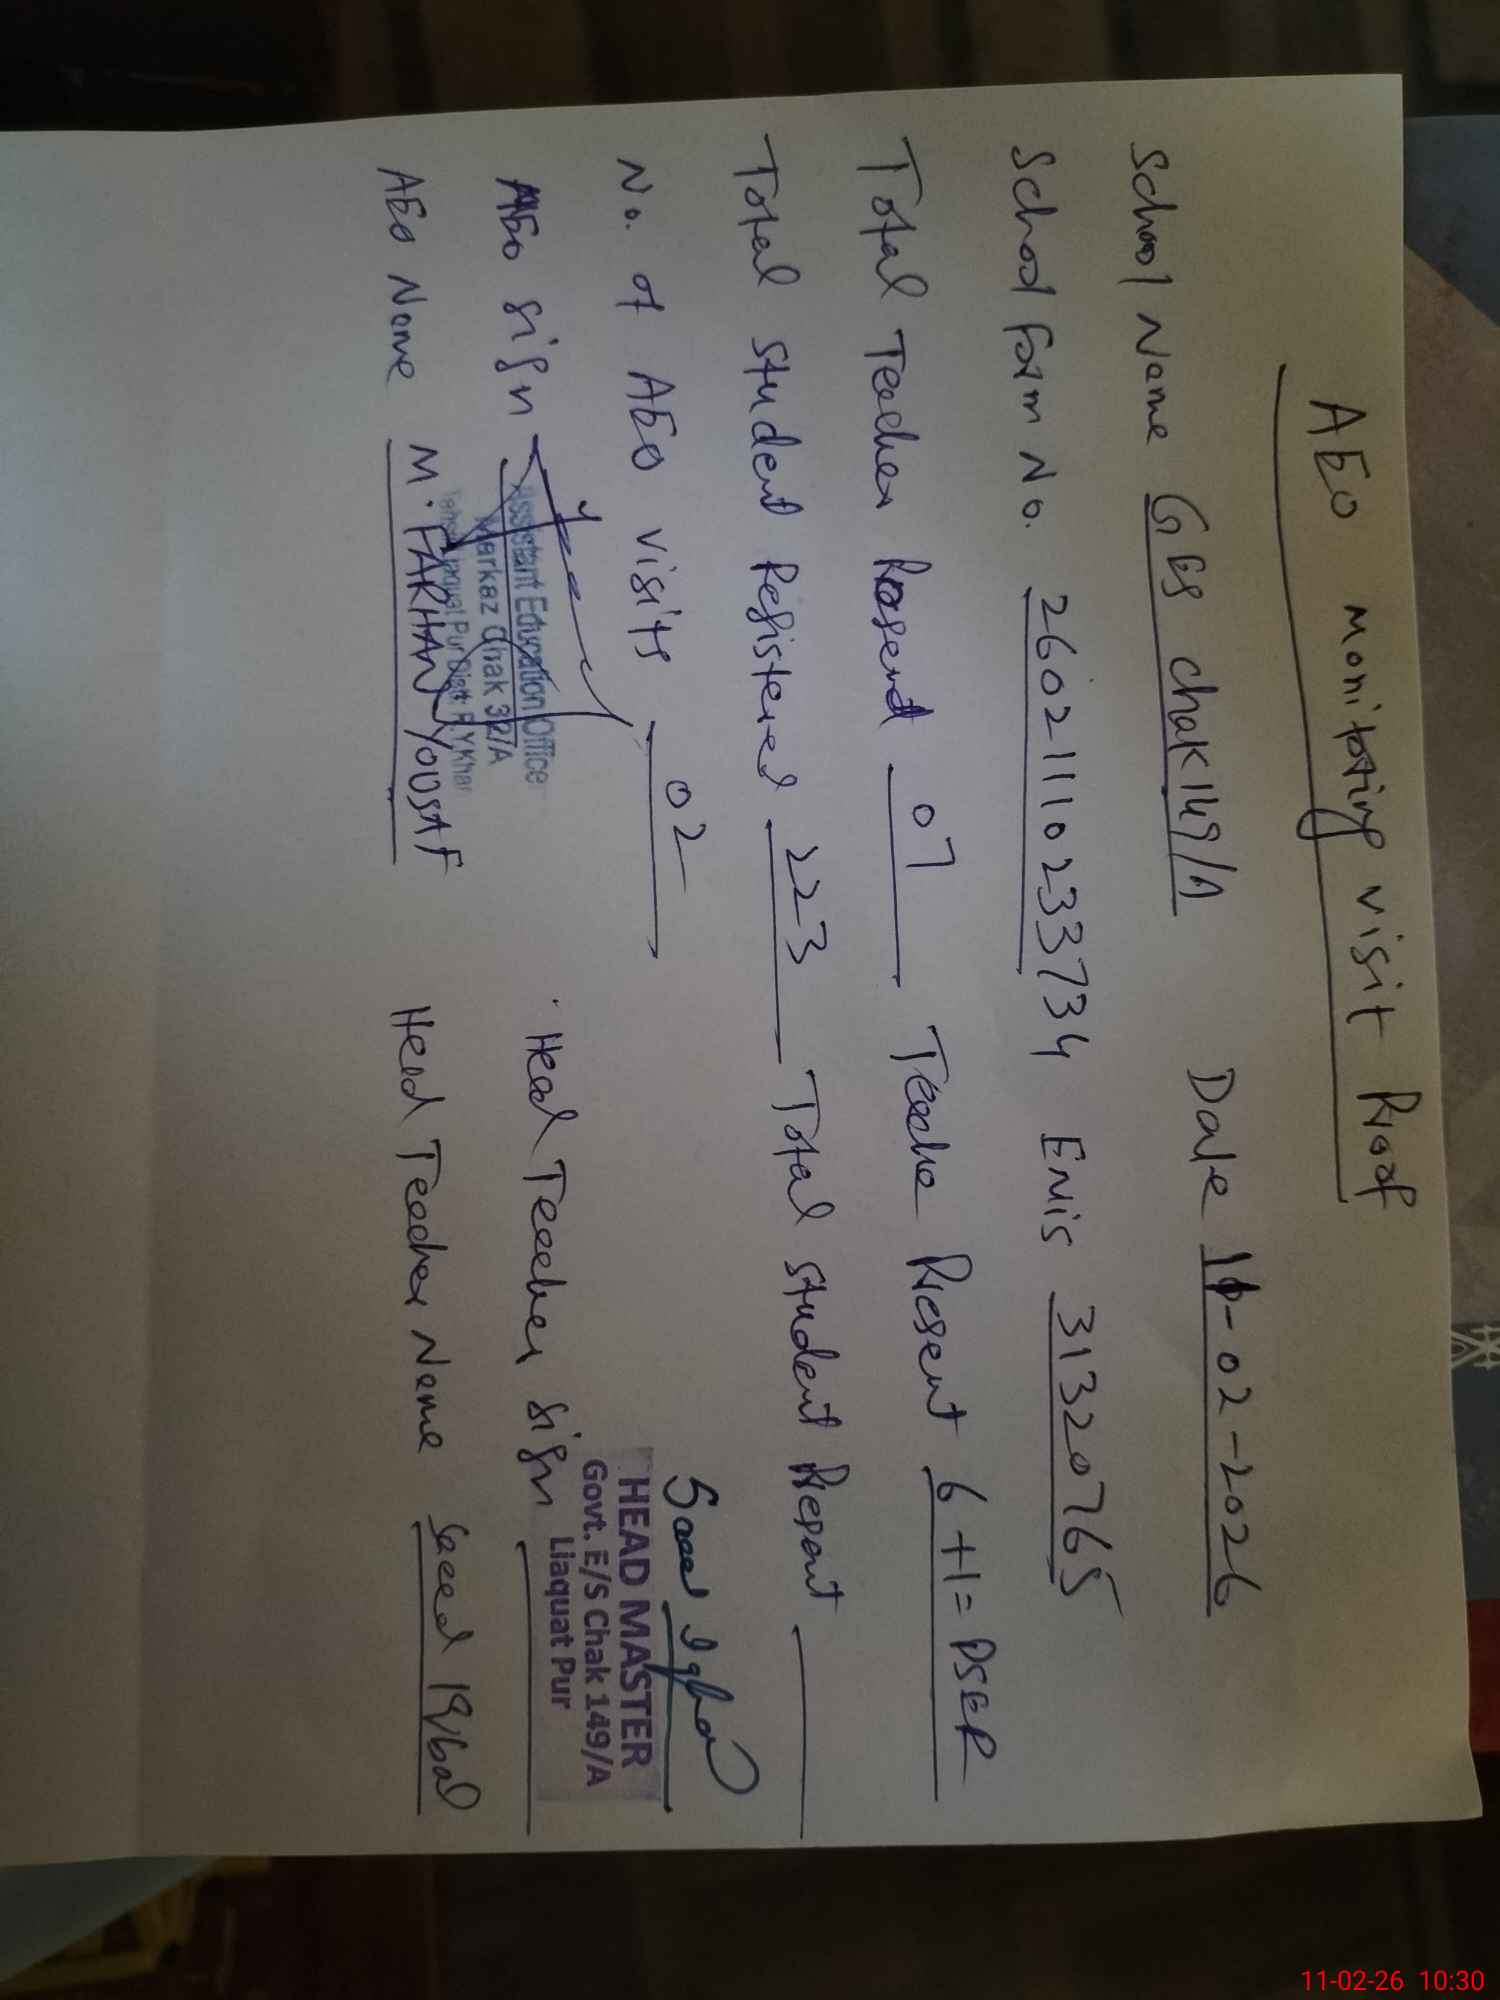 AEO monitoring visit Proof
School Name GES chak 149/A Date 11-02-2026
School form No. 26021110233734 Emis 31320765
Total Teacher Posted 07 Teache Present 6+1=PSER
Total student Registered 223 Total student Present
No. of AEO visits 02
AEO sign Head Teacher sign
Assistant Education Office
Markaz Chak 32/A
Tehsil Liaquat Pur Distt. R.Y.Khan
Saeed Iqbal
HEAD MASTER
Govt. E/S Chak 149/A
Liaquat Pur
AEO Name M. FARHAN YOUSAF Head Teacher Name Saeed Iqbal
11-02-26 10:30